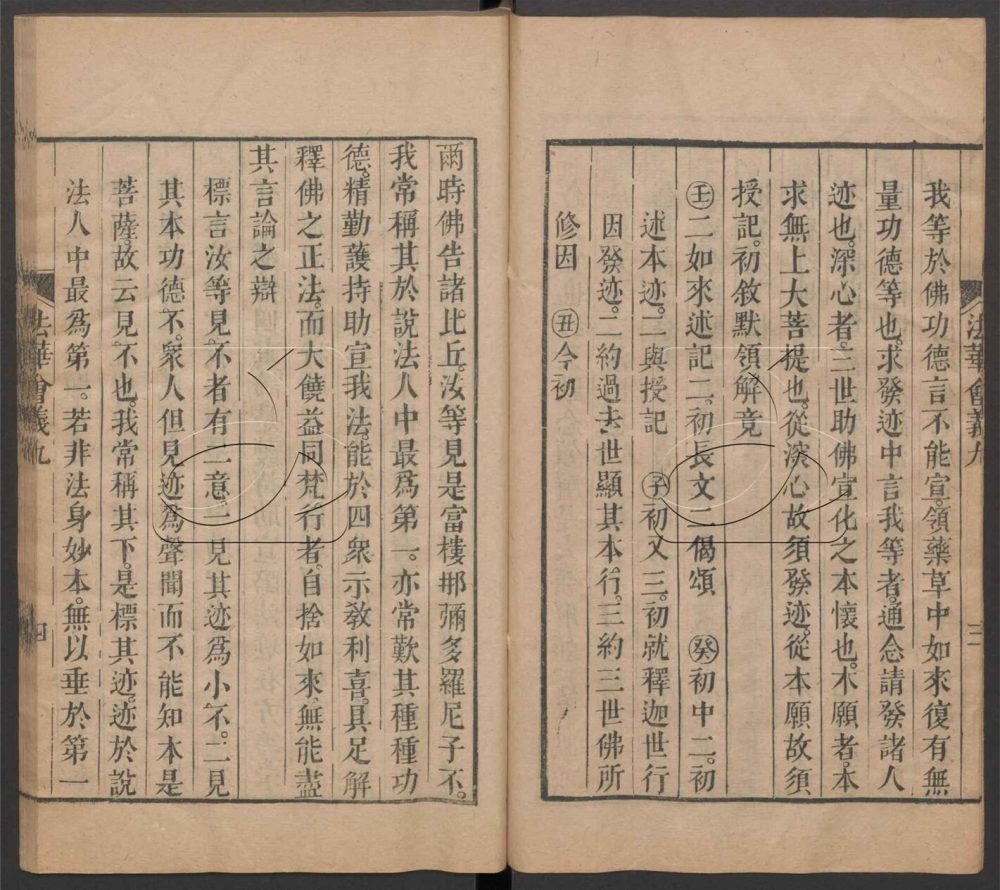 法華會義九
三
我等於佛功德言不能宣。領藥草中如來復有無
量功德等也。求發迹中言我等者。通念請發諸人
迹也。深心者。三世助佛宣化之本懷也。本願者。本
求無上大菩提也。從深心故須發迹。從本願故須
授記。初敘默領解竟
㊂壬二如來述記二。初長文二偈頌 癸初中二。初
述本迹。二與授記 子初又三。初就釋迦世行
因發迹。二約過去世顯其本行。三約三世佛所
修因 丑今初
爾時佛告諸比丘。汝等見是富樓那彌多羅尼子不。
我常稱其於說法人中最爲第一。亦常歎其種種功
德。精勤護持助宣我法。能於四衆示教利喜。具足解
釋佛之正法。而大饒益同梵行者。自捨如來。無能盡
其言論之辯
標言汝等見不者有二意。一見其迹爲小不。二見
其本功德不。衆人但見迹爲聲聞而不能知本是
菩薩。故云見不也。我常稱其下。是標其迹。迹於說
法人中最爲第一。若非法身妙本。無以垂於第一
法華會義九
四